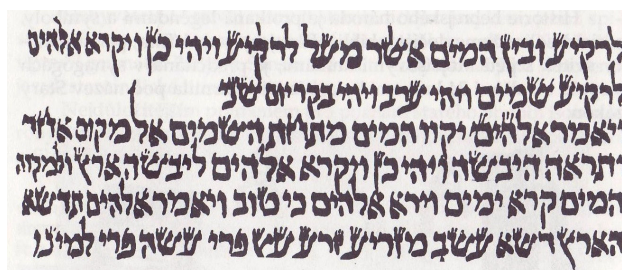 לרקיע ובין המים אשר מעל לרקיע ויהי כן ויקרא אלהים
לרקיע שמים ויהי ערב ויהי בקר יום שני
ויאמר אלהים יקוו המים מתחת השמים אל מקום אחד
ותראה היבשה ויהי כן ויקרא אלהים ליבשה ארץ ולמקוה
המים קרא ימים וירא אלהים כי טוב ויאמר אלהים תדשא
הארץ דשא עשב מזריע זרע עץ פרי עשה פרי למינו